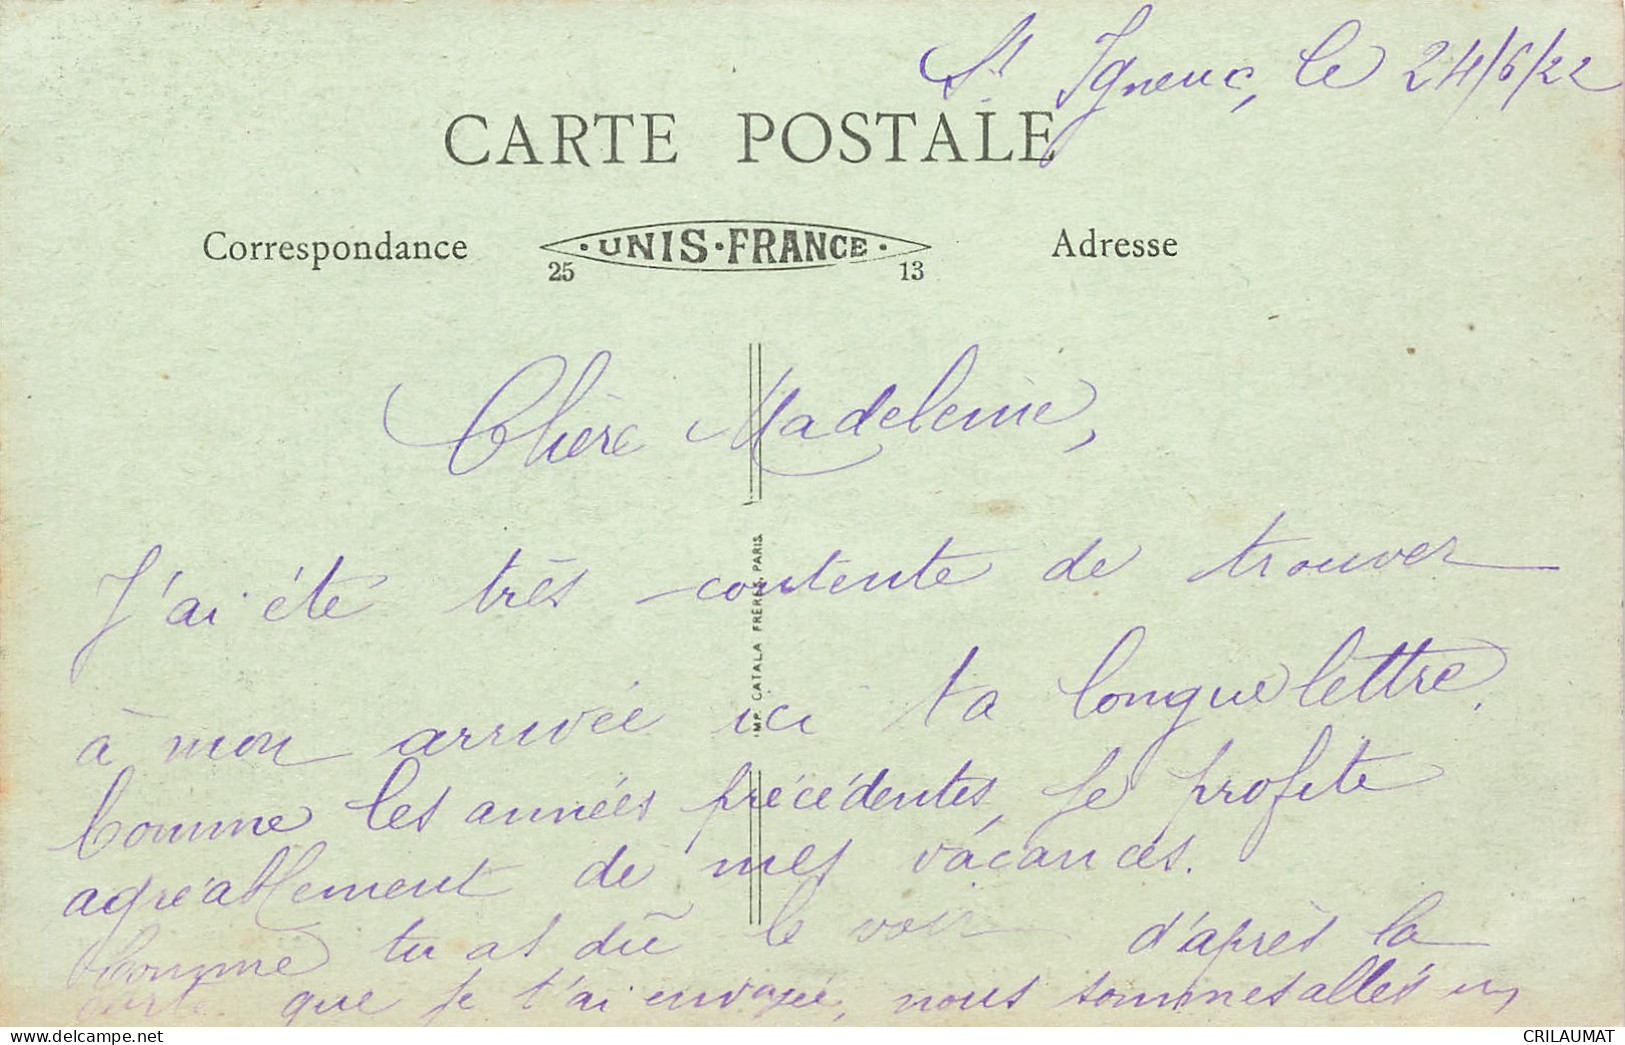 St Igneuc, le 24/6/22
CARTE POSTALE
Correspondance
·UNIS·FRANCE·
25 13
Adresse
Chère Madeleine,
J'ai été très contente de trouver
à mon arrivée ici ta longue lettre.
Comme les années précédentes, je profite
agréablement de mes vacances.
Comme tu as dû le voir d'après la
carte que je t'ai envoyée, nous sommes allés en
IMP. CATALA FRERES, PARIS
CRILAUMAT